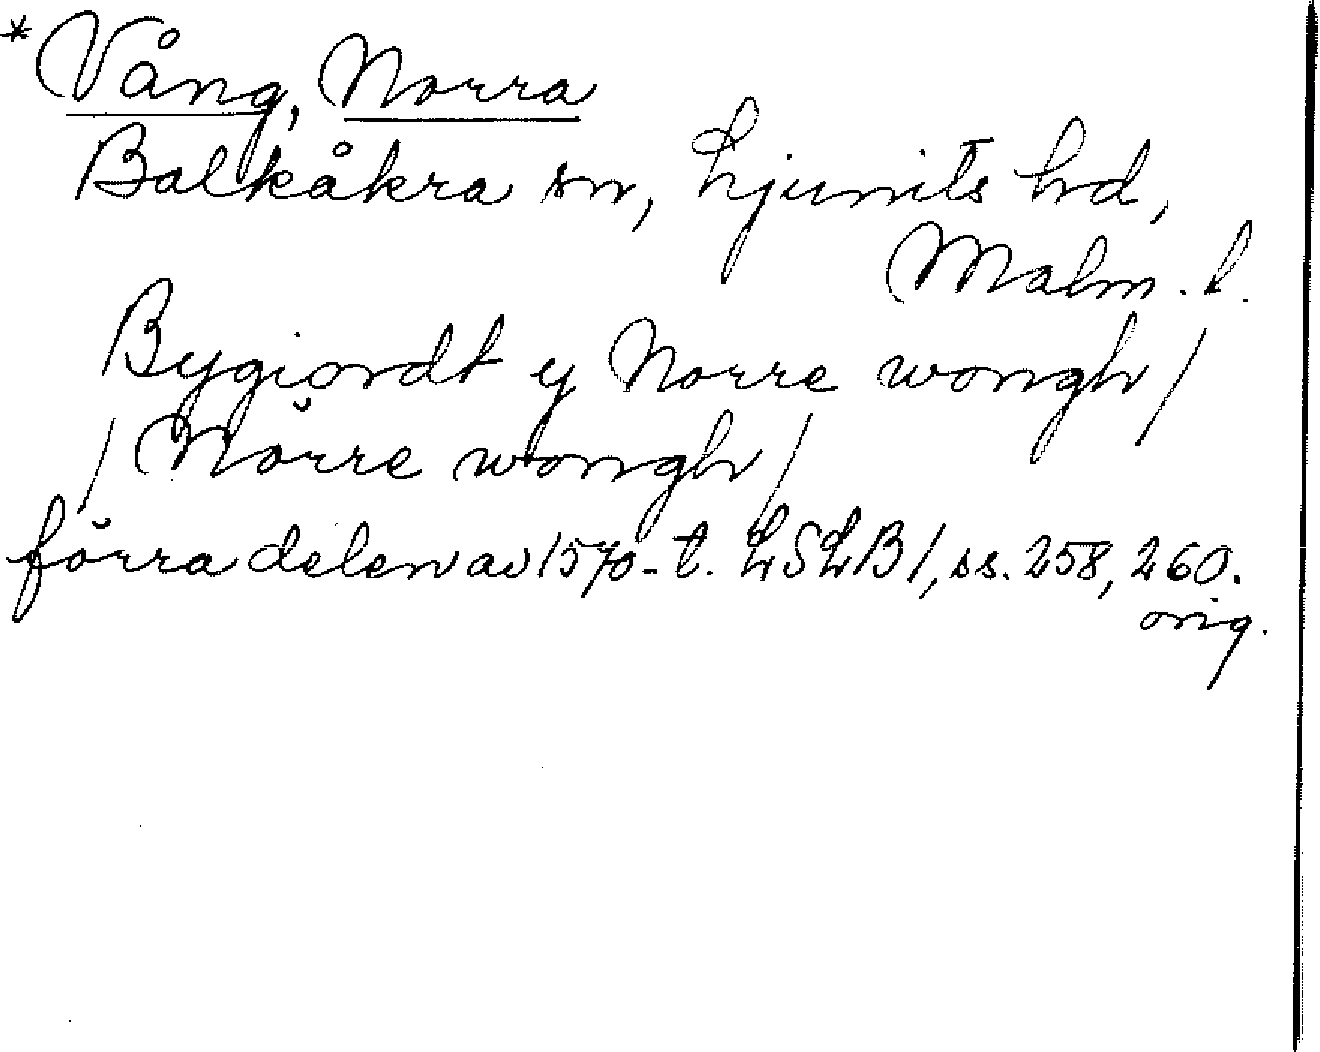 *Vång, Norra
Balkåkra sn, Ljunits hd,
Malm. l.
Bygiordt y Norre wongh/
/Nörre wongh/
förra delen av 1570-t. LSLB1, ss. 258, 260.
orig.